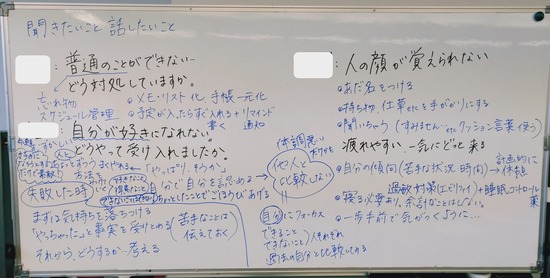 聞きたいこと 話したいこと
：普通のことができない…
どう対処していますか。
忘れ物
スケジュール管理
・メモ・リスト化、手帳一元化
・予定が入ったらすぐ入れる+リマインド
書く 通知
：自分が好きになれない。
どうやって受け入れましたか。
方法
「やっぱり、そうか。」
失敗した時
自分で自分を認める
ちょっとしたことでごほうびあげる
他人と
比較しない
まずは気持ちを落ちつける
「やっちゃった」と事実を受けとめる
それから、どうするか考える
苦手なことは
伝えておく
：人の顔が覚えられない
・あだ名をつける
・持ち物、仕草などを手がかりにする
・聞いちゃう(すみません…etcクッション言葉使う)
疲れやすい 一気にどっと来る
・自分の傾向(苦手な状況・時向)→計画的に
休憩
過敏対策(エビリファイ)+睡眠コントロール
薬
・寝る必要あり、余計なことはしない。
・一歩手前で気がつくように…
自分にフォーカス
できること
できないこと
人それぞれ
過去の自分と比較してみる